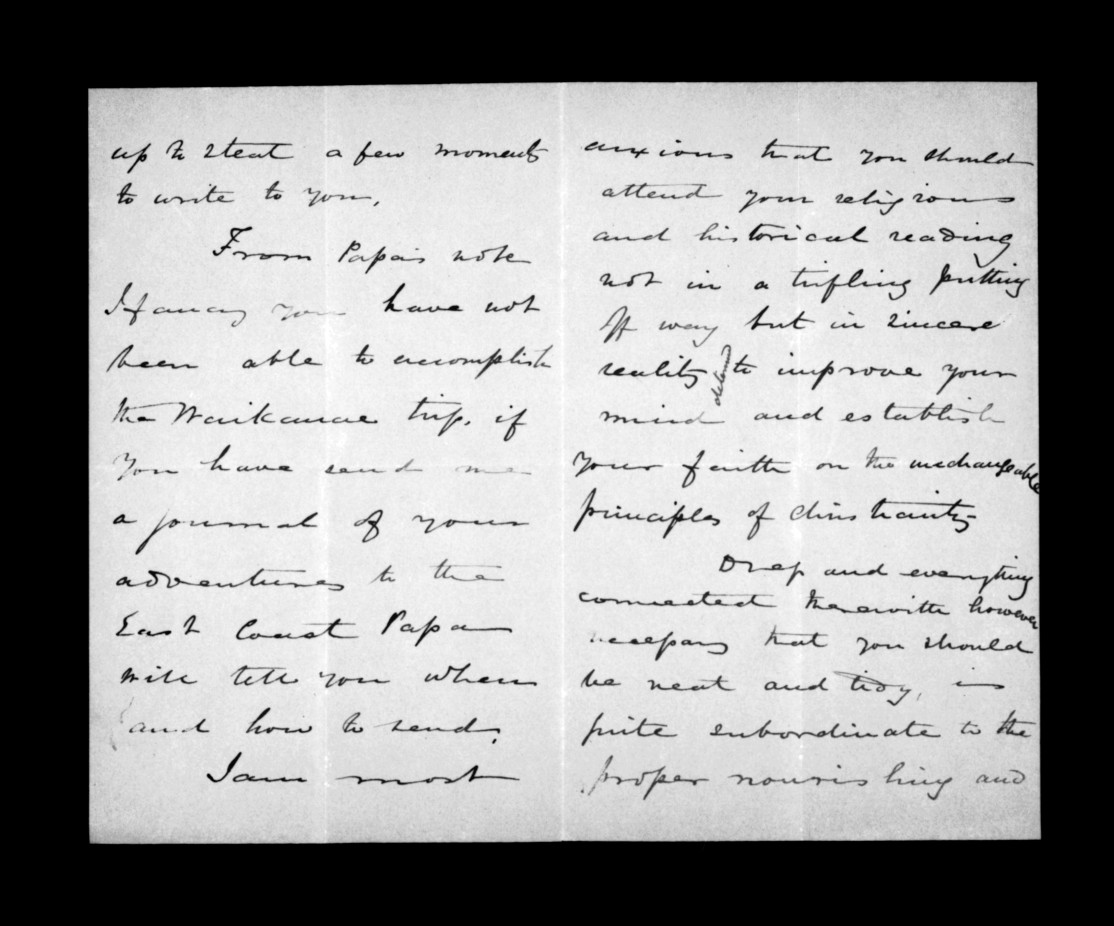 up to steal a few moments
to write to you.
From Papa's note
I fancy you have not
been able to accomplish
the Waikanae trip. if
you have send me
a journal of your
adventures to the
East Coast Papa
will tell you when
and how to send.
I am most
anxious that you should
attend your religious
and historical reading
not in a trifling putting
off way but in sincere
reality to improve your
mind and establish
your faith on the unchangeable
principles of Christianity
Dress and everything
connected therewith however
necessary that you should
be neat and tidy, is
quite subordinate to the
proper nourishing and